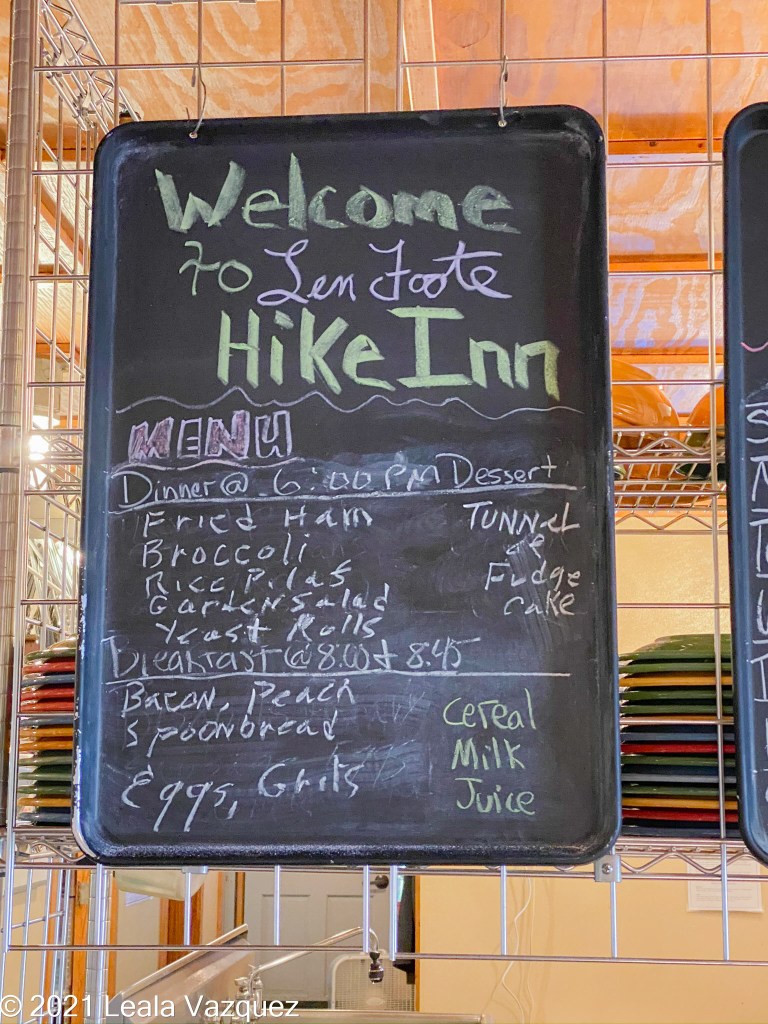 Welcome
to Len Foote
Hike Inn
MENU
Dinner@ 6:00 PM Dessert
Fried Ham
Broccoli
Rice Pilaf
Garden Salad
Yeast Rolls
TUNNEL
of
Fudge
cake
Breakfast @ 8:00 & 8:45
Bacon, Peach
Spoonbread
Eggs, Grits
Cereal
Milk
Juice
© 2021 Leala Vazquez